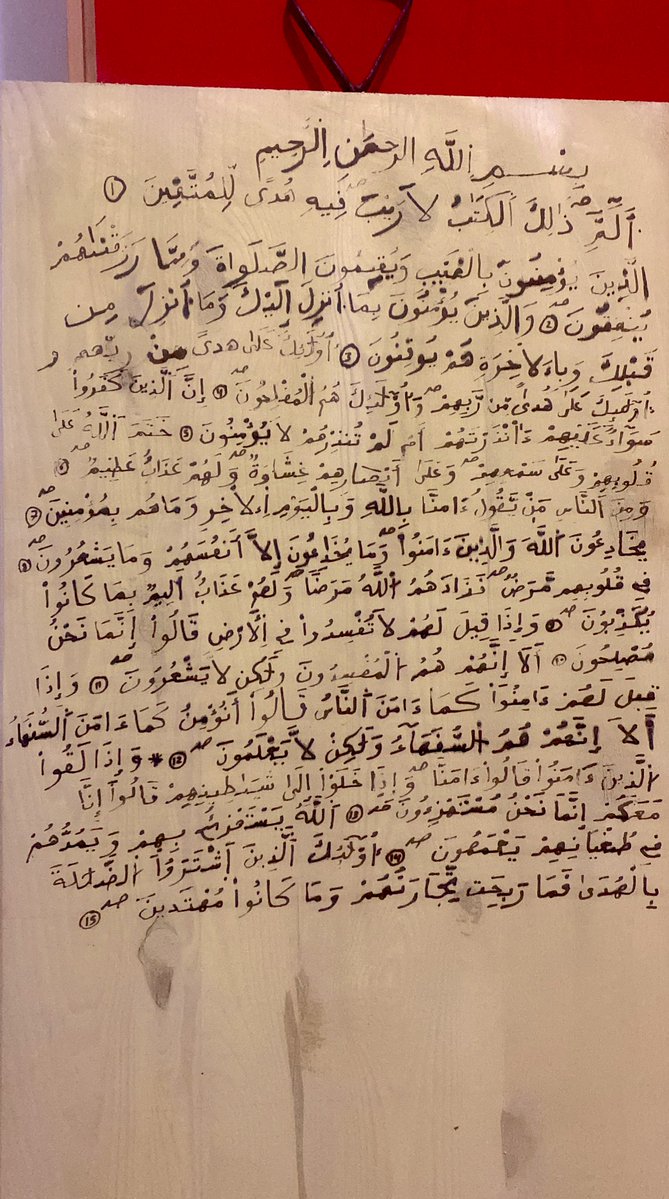 بِسْمِ اللَّهِ الرَّحْمَٰنِ الرَّحِيمِ
أَلَمِّ صـ ذَٰلِكَ الْكِتَابُ لَا رَيْبَ صـ فِيهِ هُدًى لِّلْمُتَّقِينَ ①
الَّذِينَ يُؤْمِنُونَ بِالْغَيْبِ وَيُقِيمُونَ الصَّلَوَاةَ وَمِمَّا رَزَقْنَاهُمْ
يُنفِقُونَ صـ ② وَالَّذِينَ يُؤْمِنُونَ بِمَا أُنزِلَ إِلَيْكَ وَمَا أُنزِلَ مِن
قَبْلِكَ وَبِاءَلَاخِرَةِ هُمْ يُوقِنُونَ ③ أُوْلَٰئِكَ عَلَىٰ هُدًى مِّنْ رَبِّهِمْ و
أُوْلَٰئِكَ عَلَىٰ هُدًى مِّن رَّبِّهِمْ صـ وَأُوْلَٰئِكَ هُمُ الْمُفْلِحُونَ صـ ④ إِنَّ الَّذِينَ كَفَرُواْ
سَوَآءٌ عَلَيْهِمْ ءَاْنذَرْتَهُمْ أَم لَمْ تُنذِرْهُمْ لَا يُؤْمِنُونَ ⑤ خَتَمَ اللَّهُ عَلَىٰ
قُلُوبِهِمْ وَعَلَىٰ سَمْعِهِمْ صـ وَعَلَىٰ أَبْصَارِهِمْ غِشَاوَةٌ صـ وَلَهُمْ عَذَابٌ عَظِيمٌ صـ ⑥
وَمِنَ النَّاسِ مَنْ يَّقُولُ ءَامَنَّا بِاللَّهِ وَبِالْيَوْمِ اِءلَاخِرِ وَمَاهُم بِمُؤْمِنِينَ صـ ⑦
يُخَادِعُونَ اللَّهَ وَالَّذِينَ ءَامَنُواْ صـ وَمَا يُخَٰدِعُونَ إِلَّا أَنفُسَهُمْ وَمَا يَشْعُرُونَ صـ ⑧
فِي قُلُوبِهِم مَّرَضٌ صـ فَزَادَهُمُ اللَّهُ مَرَضًا صـ وَلَهُمْ عَذَابٌ أَلِيمٌ بِمَا كَانُواْ
يُكَذِّبُونَ صـ ⑨ وَإِذَا قِيلَ لَهُمْ لَا تُفْسِدُواْ فِي اِلَارْضِ قَالُواْ إِنَّمَا نَحْنُ
مُصْلِحُونَ ⑩ أَلَا إِنَّهُمْ هُمُ الْمُفْسِدُونَ وَلَٰكِن لَا يَشْعُرُونَ صـ ⑪ وَإِذَا
قِيلَ لَهُمْ ءَامِنُواْ كَمَا ءَامَنَ النَّاسُ قَالُواْ أَنُؤْمِنُ كَمَا ءَامَنَ السُّفَهَاءُ
أَلَا إِنَّهُمْ هُمُ السُّفَهَآءُ وَلَٰكِنْ لَّا يَعْلَمُونَ صـ ⑫ * وَإِذَا لَقُواْ
الَّذِينَ ءَامَنُواْ قَالُواْ ءَامَنَّا صـ وَإِذَا خَلَوْاْ إِلَىٰ شَيَاطِينِهِمْ قَالُواْ إِنَّا
مَعَكُمْ إِنَّمَا نَحْنُ مُسْتَهْزِءُونَ صـ ⑬ اللَّهُ يَسْتَهْزِئُ بِهِمْ وَيَمُدُّهُمْ
فِي طُغْيَانِهِمْ يَعْمَهُونَ صـ ⑭ أُوْلَٰئِكَ الَّذِينَ اَشْتَرَوُاْ الضَّلَٰلَةَ
بِالْهُدَىٰ فَمَا رَبِحَت تِّجَارَتُهُمْ وَمَا كَانُواْ مُهْتَدِينَ صـ ⑮